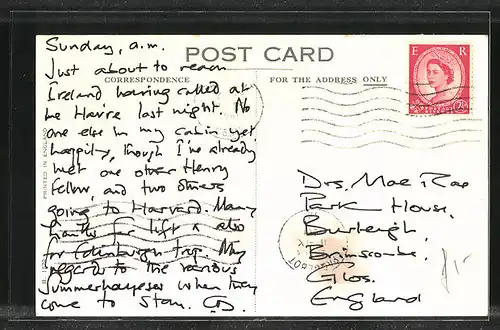 Sunday, a.m.
POST CARD
Just about to reach
CORRESPONDENCE
FOR THE ADDRESS ONLY
Ireland having called at
Le Havre last night. No
one else in my cabin yet
happily, though I've already
met one other Henry
fellow, and two others
going to Harvard. Many
thanks for lift & also
for Edinburgh trip. My
regards to the various
Summerhayeses when they
come to stay.
E R
Drs. Mae Rae
Park House,
Burleigh,
Brimscombe,
Glos.
England
PRINTED IN ENGLAND